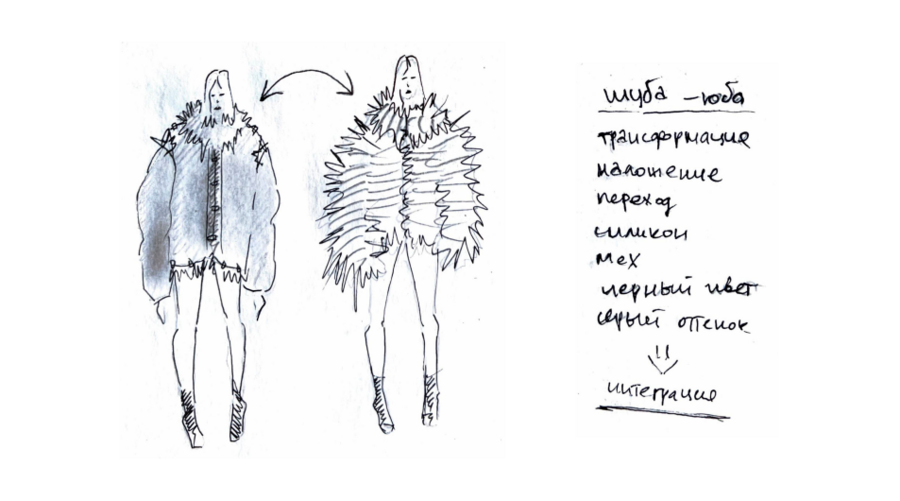 шуба – юба
трансформация
наложение
переход
силикон
мех
черный цвет
серый оттенок
интеграция